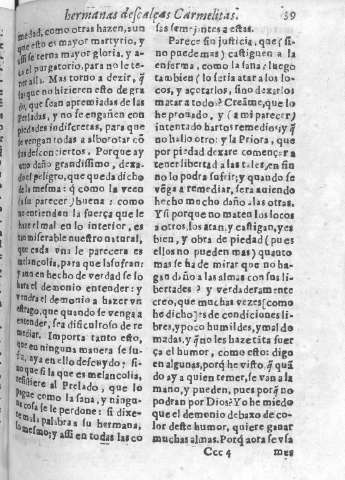 hermanas descalças Carmelitas. 59
medad, como otras hazen, aun
que esto es mayor martyrio, y
assi se terna mayor gloria, y a-
el purgatorio, para no le te-
ner alla. Mas torno a dezir, q̃
las que no hizieren esto de gra
do, que sean apremiadas de las
Perladas, y no se engañen con
piedades indiscretas, para que
se vengan todas a alborotar cõ
sus desconciertos. Porque ay
vno daño grandissimo, dexa-
do el peligro, que queda dicho
de la mesma: q̃ como la veen
(a su parecer) buena: como
no entienden la fuerça que le
haze el mal en lo interior, es
tan miserable nuestro natural,
que cada vna le parecera es
melancolia, para que la sufran:
y aun en hecho de verdad se lo
hara el demonio entender: y
vendra el demonio a hazer vn
estrago, que quando se venga a
entender, sea dificultoso de re
mediar. Importa tanto esto,
que en ninguna manera se su-
fre, aya en ello descuydo; si-
no que si la que es melancolia,
resistiere al Prelado, que lo
pague como la sana, y ningu-
na cosa se le perdone: si dixe-
re mala palabra a su hermana,
lo mesmo; y assi en todas las co
sas semejantes a estas.
Parece sin justicia, que (si-
no puede mas) castiguen a la
enferma, como la sana: luego
tambien lo seria atar a los lo-
cos, y açotarlos, sino dexarlos
matar a todos? Creãme, que lo
he prouado, y (a mi parecer)
intentado hartos remedios, y q̃
no hallo otro: y la Priora, que
por piedad dexare començar a
tener libertad a las tales, en fin
no lo podra sufrir; y quando se
vẽga a remediar, sera auiendo
hecho mucho daño a las otras.
Y si porque no maten los locos
a otros, los atan, y castigan, y es
bien, y obra de piedad (pues
ellos no pueden mas) quanto
mas se ha de mirar que no ha-
gan daño a las almas con sus li-
bertades? y verdaderamente
creo, que muchas vezes [como
he dicho] es de condiciones li-
bres, y poco humildes, y mal do
madas, y q̃ no les haze tãta fuer
ça el humor, como esto: digo
en algunas, porq̃ he visto, q̃ quã
do ay a quien temer, se van a la
mano, y pueden, pues porq̃ no
podran por Dios? Yo he miedo
que el demonio debaxo de co-
lor deste humor, quiere ganar
muchas almas. Porq̃ aora se vsa
Ccc 4 mas